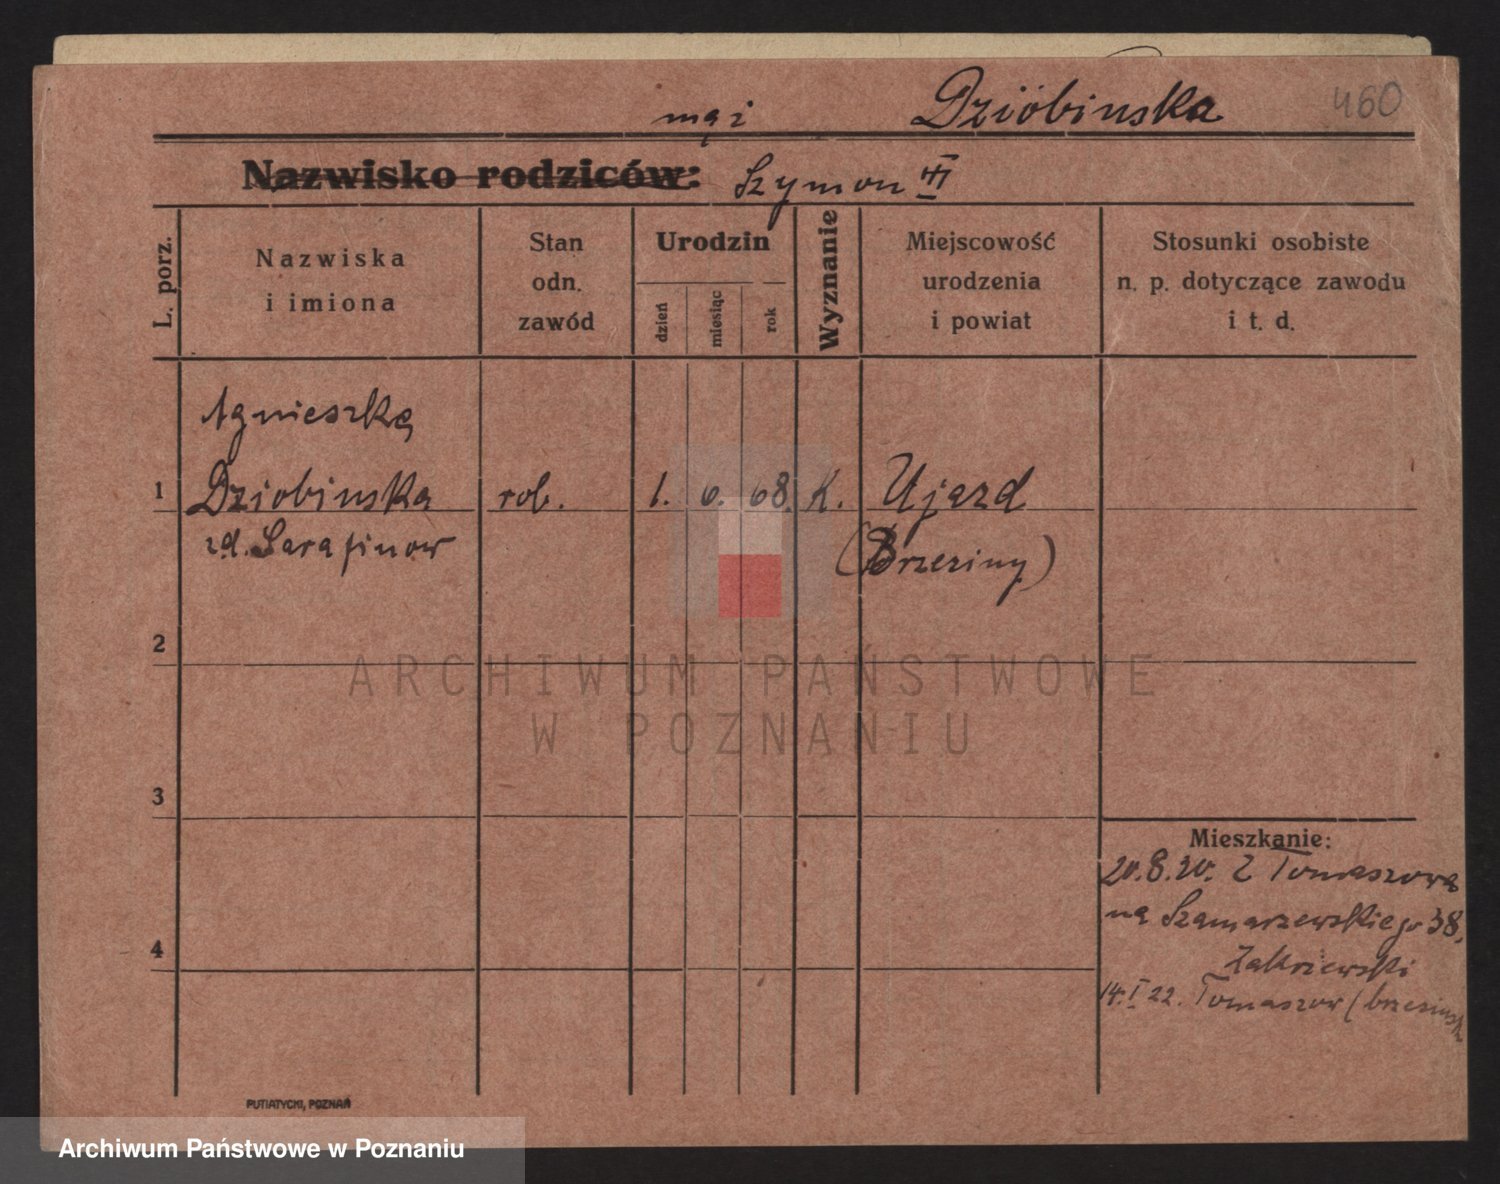 Dzióbinska 460
mąż
Nazwisko rodziców: Szymon
L. porz.
Nazwiska
i imiona
Stan
odn.
zawód
Urodzin
dzień
miesiąc
rok
Wyznanie
Miejscowość
urodzenia
i powiat
Stosunki osobiste
n. p. dotyczące zawodu
i t. d.
Agnieszka
1 Dziobinska rob. 1. 6. 68. K. Ujazd
zd. Sarafinow (Brzeziny)
2
3
4
Mieszkanie:
20.8.20. Z Tomaszowa
na Szamarzewskiego 38.
Zakrzewski
14.I 22. Tomaszow (brzezinsk
PUTIATYCKI, POZNAŃ
ARCHIWUM PAŃSTWOWE
W POZNANIU
Archiwum Państwowe w Poznaniu